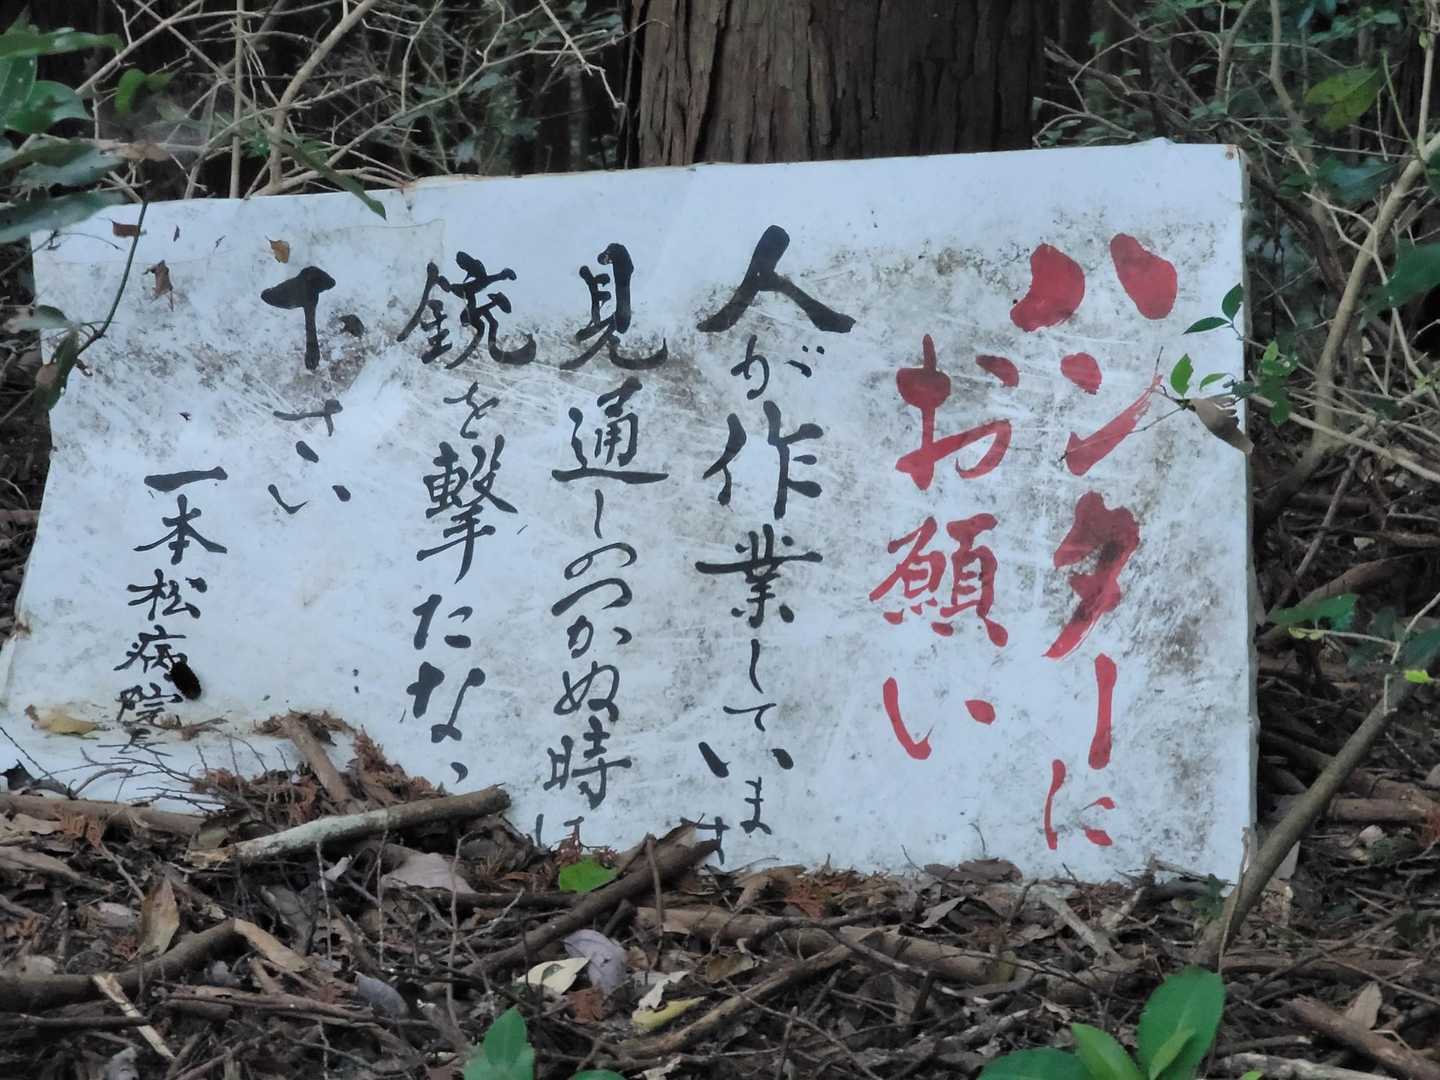 ハンターに
お願い
人が作業しています
見通しのつかぬ時は
銃を撃たない
下さい
一本松病院長